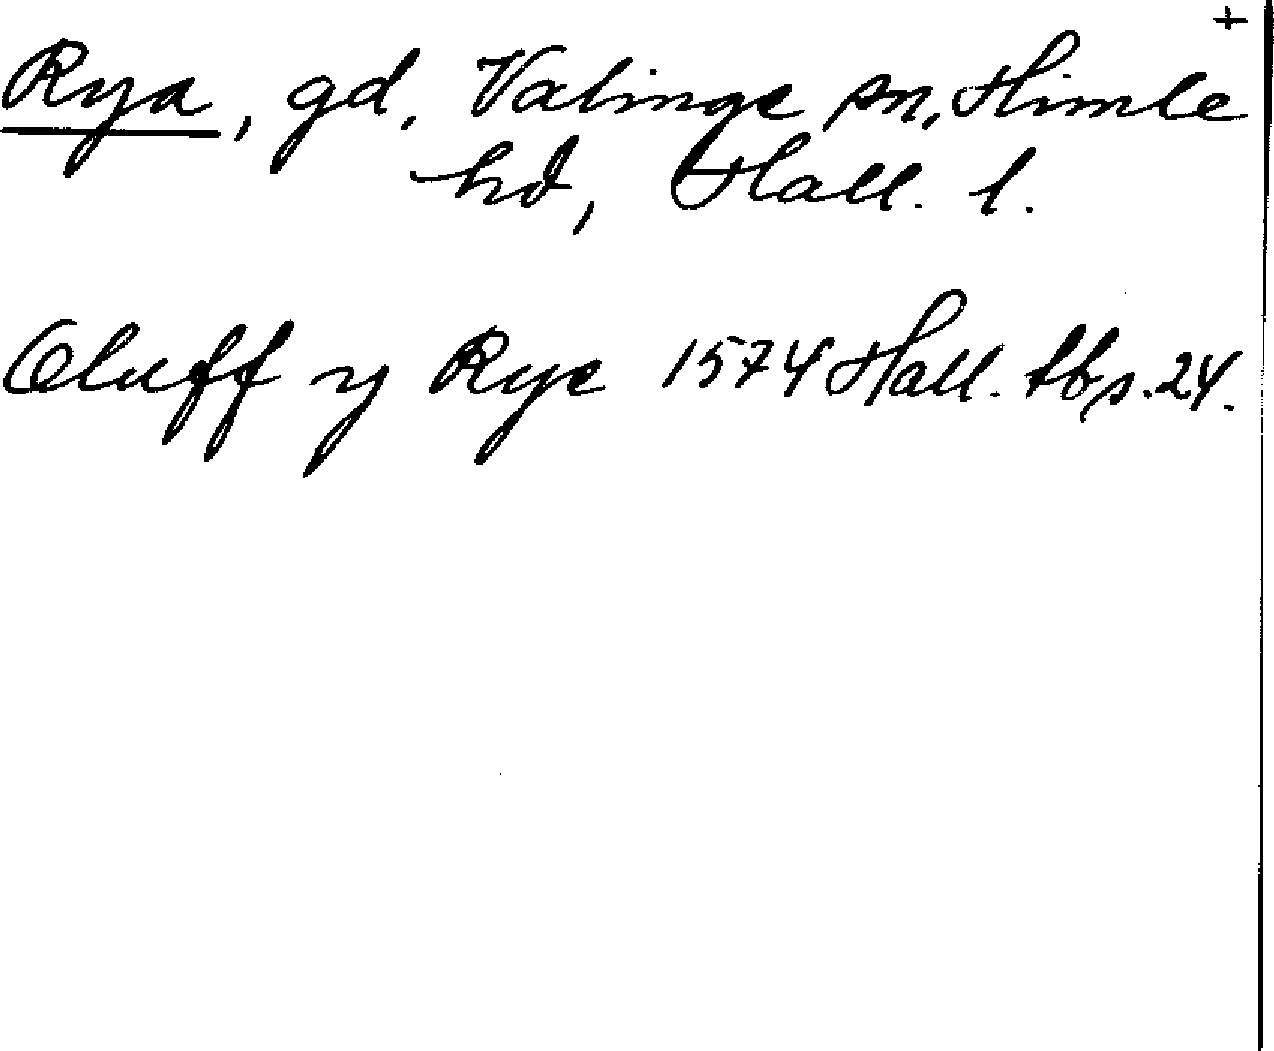 +
Rya, gd, Valinge sn, Himle
hd, Hall. l.
Oluff y Rye 1574 Hall. tb s. 24.